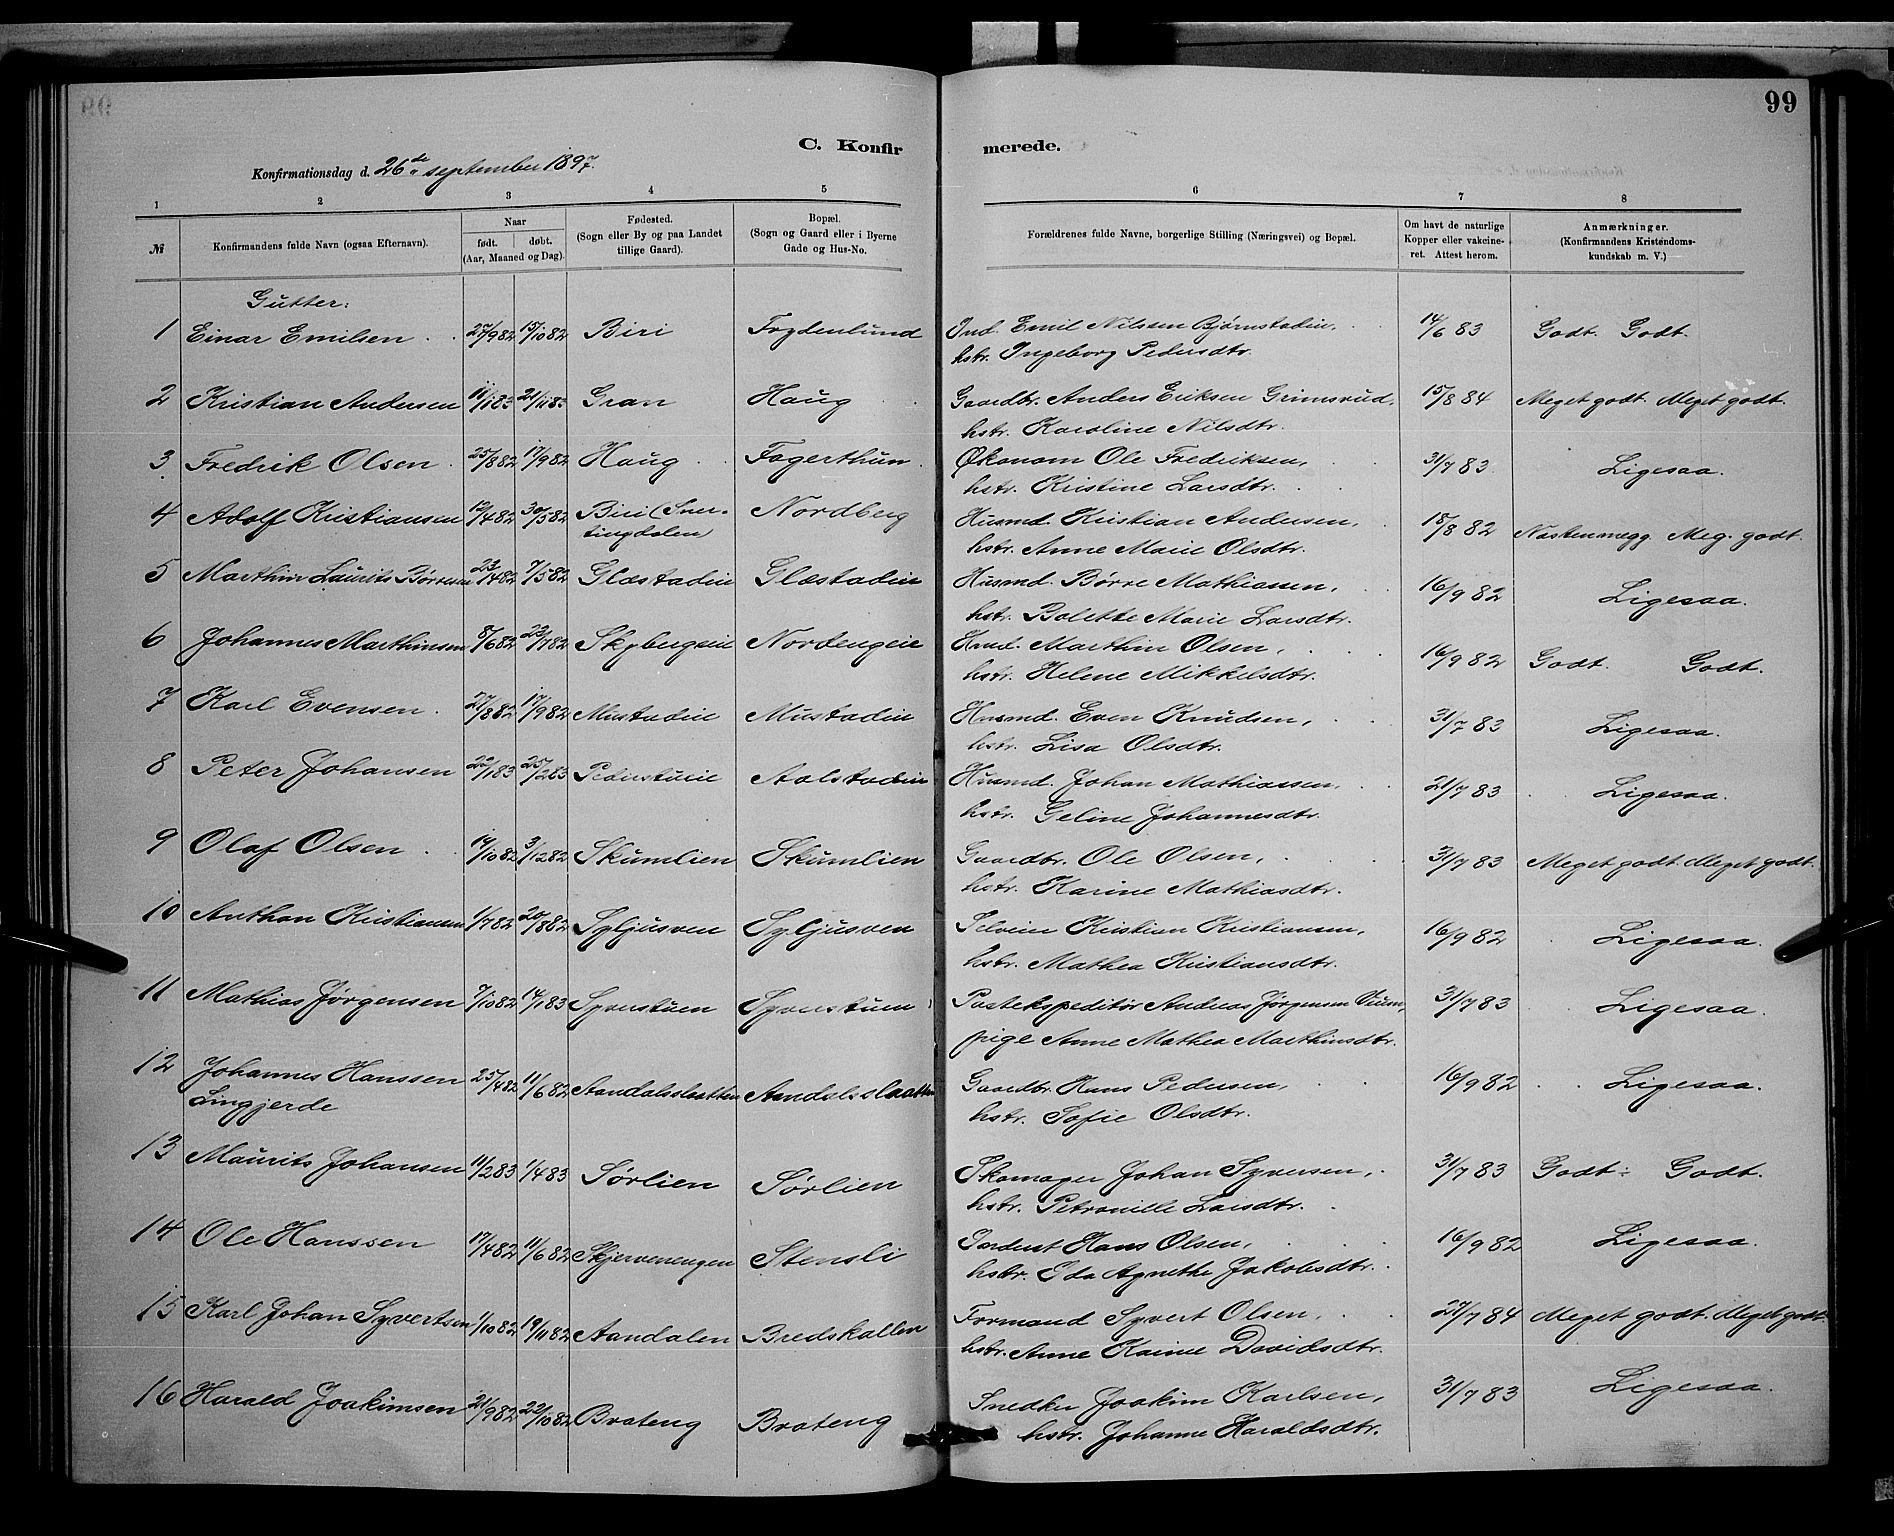 99
C. Konfirmerede.
Konfirmationsdag d. 26de september 1897.
1 2 3 4 5 6 7 8
№
Konfirmandens fulde Navn (ogsaa Efternavn).
Naar
født. døbt.
(Aar, Maaned og Dag).
Fødested.
(Sogn eller By og paa Landet
tillige Gaard).
Bopæl.
(Sogn og Gaard eller i Byerne
Gade og Hus-No.
Forældrenes fulde Navne, borgerlige Stilling (Næringsvei) og Bopæl.
Om havt de naturlige
Kopper eller vakcine-
ret. Attest herom.
Anmærkninger.
(Konfirmandens Kristendoms-
kundskab m. V.)
Gutter:
1 Einar Emilsen 27/9 82 15/10 82 Biri Fogdenlund Ind. Emil Nilssen Bjørnstadeie, 14/6 83 Godt. Godt.
hstr. Ingeborg Pedersdtr.
2 Kristian Andersen 11/1 83 21/11 83 Gran Haug Gaardbr. Anders Eriksen Grimsrud, 15/8 84 Meget godt. Meget godt.
hstr. Karoline Nilsdtr.
3 Fredrik Olsen 25/8 82 17/9 82 Haug Fagerthun Økonom Ole Fredriksen, 31/7 83 Ligesaa.
hstr. Kristine Larsdtr.
4 Adolf Kristiansen 12/4 82 30/5 82 Biri (Sner- Nordberg Husmd. Kristian Andersen, 18/8 82 Næsten megg. Meg. godt.
tingdalen) hstr. Anne Marie Olsdtr.
5 Marthin Laurits Børresen 23/4 82 7/5 82 Glæstadeie Glæstadeie Husmd. Børre Mathiassen, 16/9 82 Ligesaa.
hstr. Bolette Marie Larsdtr.
6 Johannes Marthinsen 8/6 82 23/7 82 Skybergseie Nordengeie Hmd. Marthin Olsen, 16/9 82 Godt. Godt.
hstr. Helene Mikkelsdtr.
7 Karl Evensen 27/8 82 17/9 82 Mustadeie Mustadeie Husmd. Even Knudsen, 31/7 83 Ligesaa.
hstr. Lisa Olsdtr.
8 Peter Johansen 22/1 83 25/2 83 Pederstueie Aalstadeie Husmd. Johan Mathiassen, 21/7 83 Ligesaa.
hstr. Geline Johannesdtr.
9 Olaf Olsen 19/10 82 3/12 82 Skumlien Skumlien Gaardbr. Ole Olsen, 31/7 83 Meget godt. Meget godt.
hstr. Karine Mathiasdtr.
10 Anthon Kristiansen 1/7 82 20/8 82 Syljusven Syljusven Selveier Kristian Kristiansen, 16/9 82 Ligesaa.
hstr. Mathea Kristiansdtr.
11 Mathias Jørgensen 7/10 82 14/1 83 Syverstuen Syverstuen Postekspeditør Andreas Jørgensen 31/7 83 Ligesaa.
pige Anne Mathea Marthinsdtr.
12 Johannes Hanssen 25/4 82 11/6 82 Aandalsslaatten Aandalsslaatten Gaardbr. Hans Pedersen, 16/9 82 Ligesaa.
Lingjerde hstr. Sofie Olsdtr.
13 Maurits Johansen 11/2 83 1/4 83 Sørlien Sørlien Skomager Johan Syversen, 31/7 83 Godt. Godt.
hstr. Petronille Larsdtr.
14 Ole Hanssen 17/4 82 11/6 82 Skjervenengen Stensli Hans Olsen, 16/9 82 Ligesaa.
hstr. Eda Agnethe Jakobsdtr.
15 Karl Johan Syvertsen 1/10 82 19/11 82 Aandalen Bredskallen Formand Syvert Olsen, 27/7 84 Meget godt. Meget godt.
hstr. Anne Karine Davidsdtr.
16 Harald Joakimsen 21/9 82 22/10 82 Brateng Brateng Snedker Joakim Karlsen, 31/7 83 Ligesaa.
hstr. Johanne Haraldsdtr.